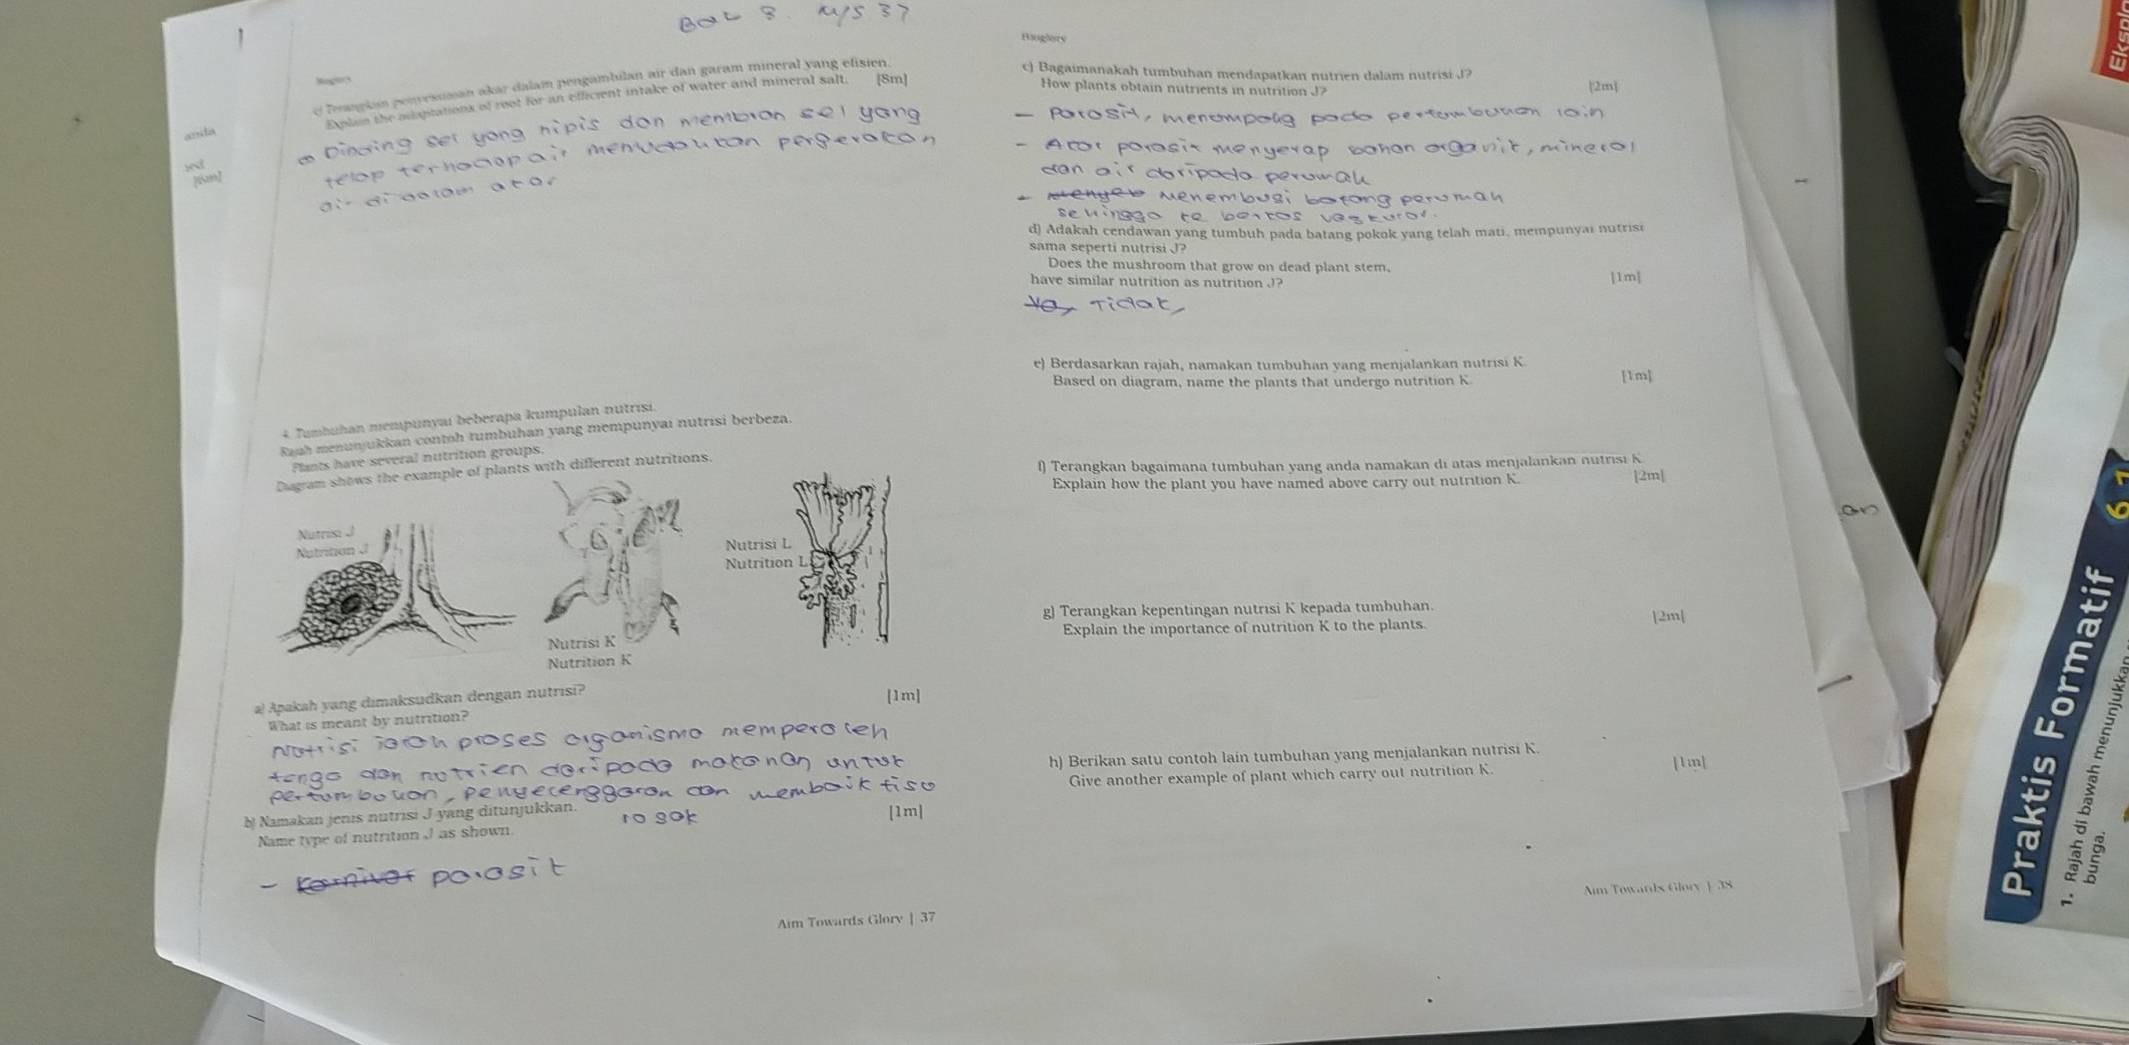 Bab 8. M/S 37
c) Terangkan penyesuaian akar dalam pengambilan air dan garam mineral yang efisien.
Explain the adaptations of root for an efficient intake of water and mineral salt. [8m]
anda
Dinding sel yang nipis dan membran sel yang
telap terhadap air memudahkan pergerakan
air di dalam akar
4. Tumbuhan mempunyai beberapa kumpulan nutrisi.
Rajah menunjukkan contoh tumbuhan yang mempunyai nutrisi berbeza.
Plants have several nutrition groups.
Diagram shows the example of plants with different nutritions.
Nutrisi J
Nutrition J
Nutrisi K
Nutrition K
Nutrisi L
Nutrition L
a) Apakah yang dimaksudkan dengan nutrisi? [1m]
What is meant by nutrition?
Nutrisi ialah proses organisma memperoleh
tenga dan nutrien daripada makanan untuk
pertumbuhan, penyelenggaran dan membaik tisu
rosak
b) Namakan jenis nutrisi J yang ditunjukkan. [1m]
Name type of nutrition J as shown.
- karnivor parasit
Aim Towards Glory | 37
c) Bagaimanakah tumbuhan mendapatkan nutrien dalam nutrisi J?
How plants obtain nutrients in nutrition J? [2m]
- Parasit, menumpang pada pertumbuhan lain
- Akar parasit menyerap bahan organik, mineral
dan air daripada perumah
- menyeb Menembusi batang perumah
sehingga ke berkas vaskular.
d) Adakah cendawan yang tumbuh pada batang pokok yang telah mati, mempunyai nutrisi
sama seperti nutrisi J?
Does the mushroom that grow on dead plant stem,
have similar nutrition as nutrition J? [1m]
Ya, Tidak,
e) Berdasarkan rajah, namakan tumbuhan yang menjalankan nutrisi K.
Based on diagram, name the plants that undergo nutrition K. [1m]
f) Terangkan bagaimana tumbuhan yang anda namakan di atas menjalankan nutrisi K.
Explain how the plant you have named above carry out nutrition K. [2m]
g) Terangkan kepentingan nutrisi K kepada tumbuhan.
Explain the importance of nutrition K to the plants. [2m]
h) Berikan satu contoh lain tumbuhan yang menjalankan nutrisi K.
Give another example of plant which carry out nutrition K. [1m]
Aim Towards Glory | 38
an
Praktis Formatif 6
1. Rajah di bawah menunjukkan
bunga.